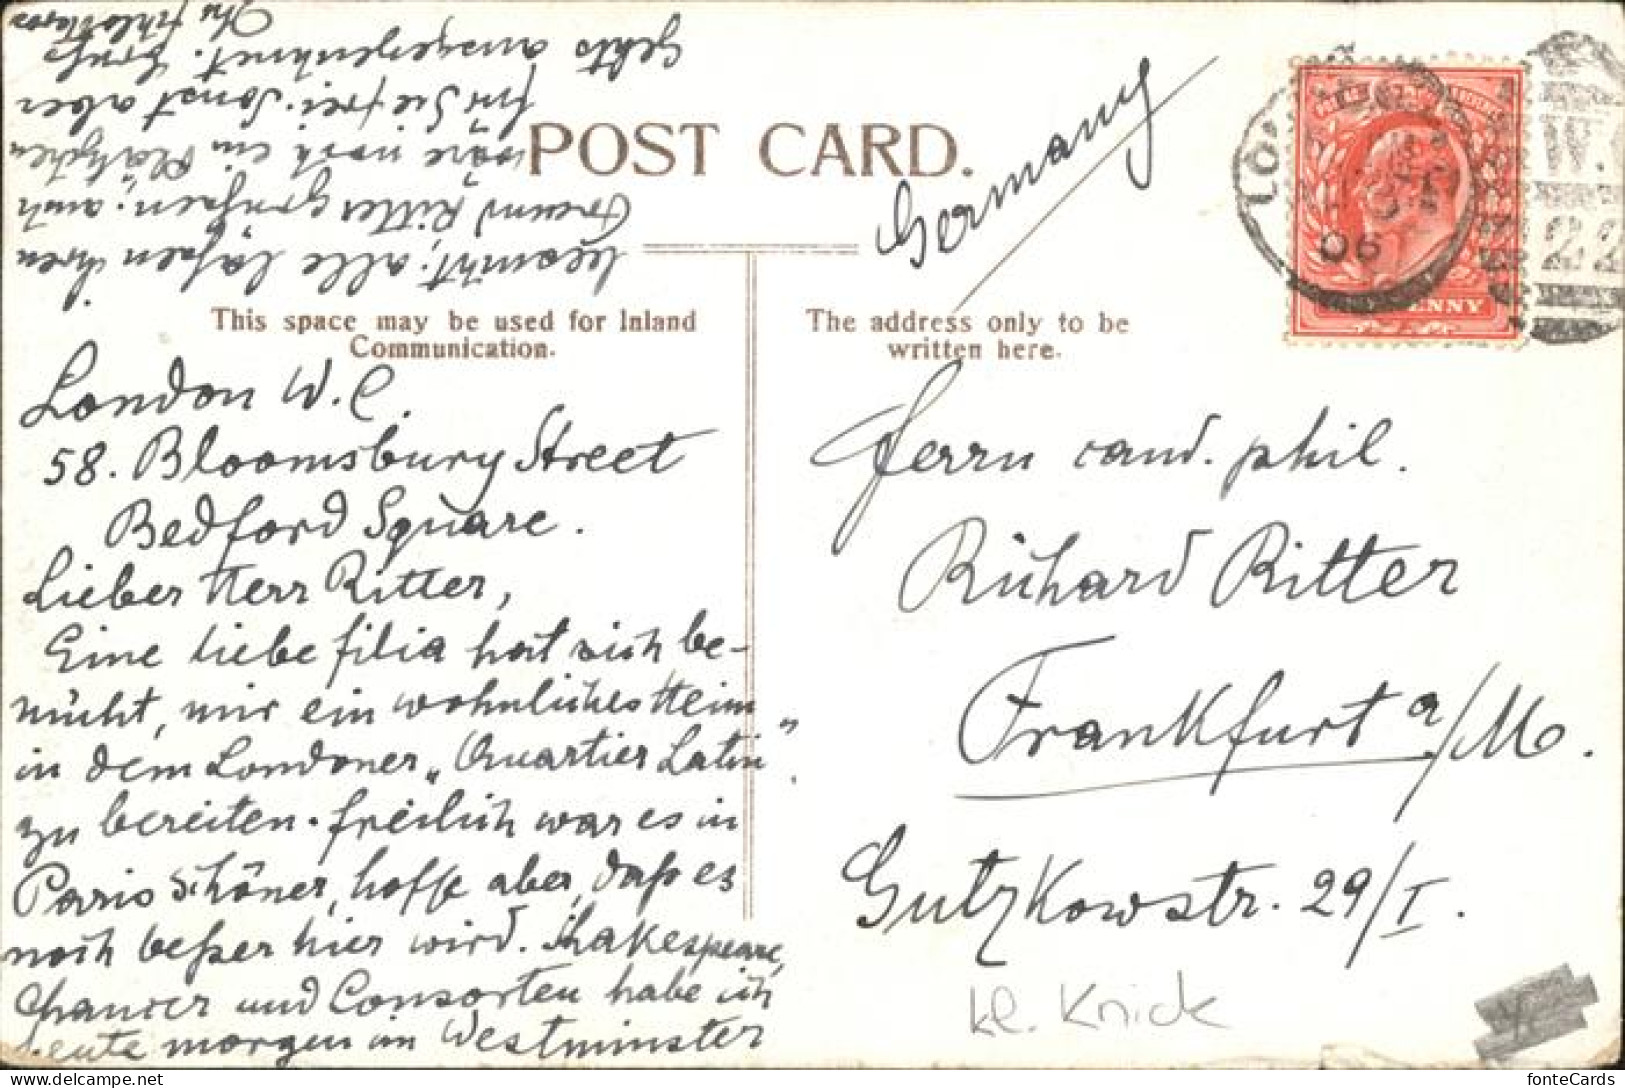 POST CARD.
Germany
This space may be used for Inland
Communication.
The address only to be
written here.
LO
06
W.
22
PENNY
London W.C.
58. Bloomsbury Street
Bedford Square.
Lieber Herr Ritter,
Eine liebe filia hat sich be-
müht, mir ein wohnliches Heim
in dem Londoner „Quartier Latin"
zu bereiten. Freilich war es in
Paris schöner, hoffe aber, daß es
noch beßer hier wird. Shakespeare,
Chaucer und Consorten habe ich
heute morgen im Westminster
besucht; alle laßen ihren
Freund Ritter grüßen; auch
wäre noch ein Plätzchen
für Sie frei. Sonst aber
Gehts ausgezeichnet. Gruß
Ihr
Herrn cand. phil.
Richard Ritter
Frankfurt a/M.
Gutzkowstr. 29/I.
kl. Knick
fonteCards